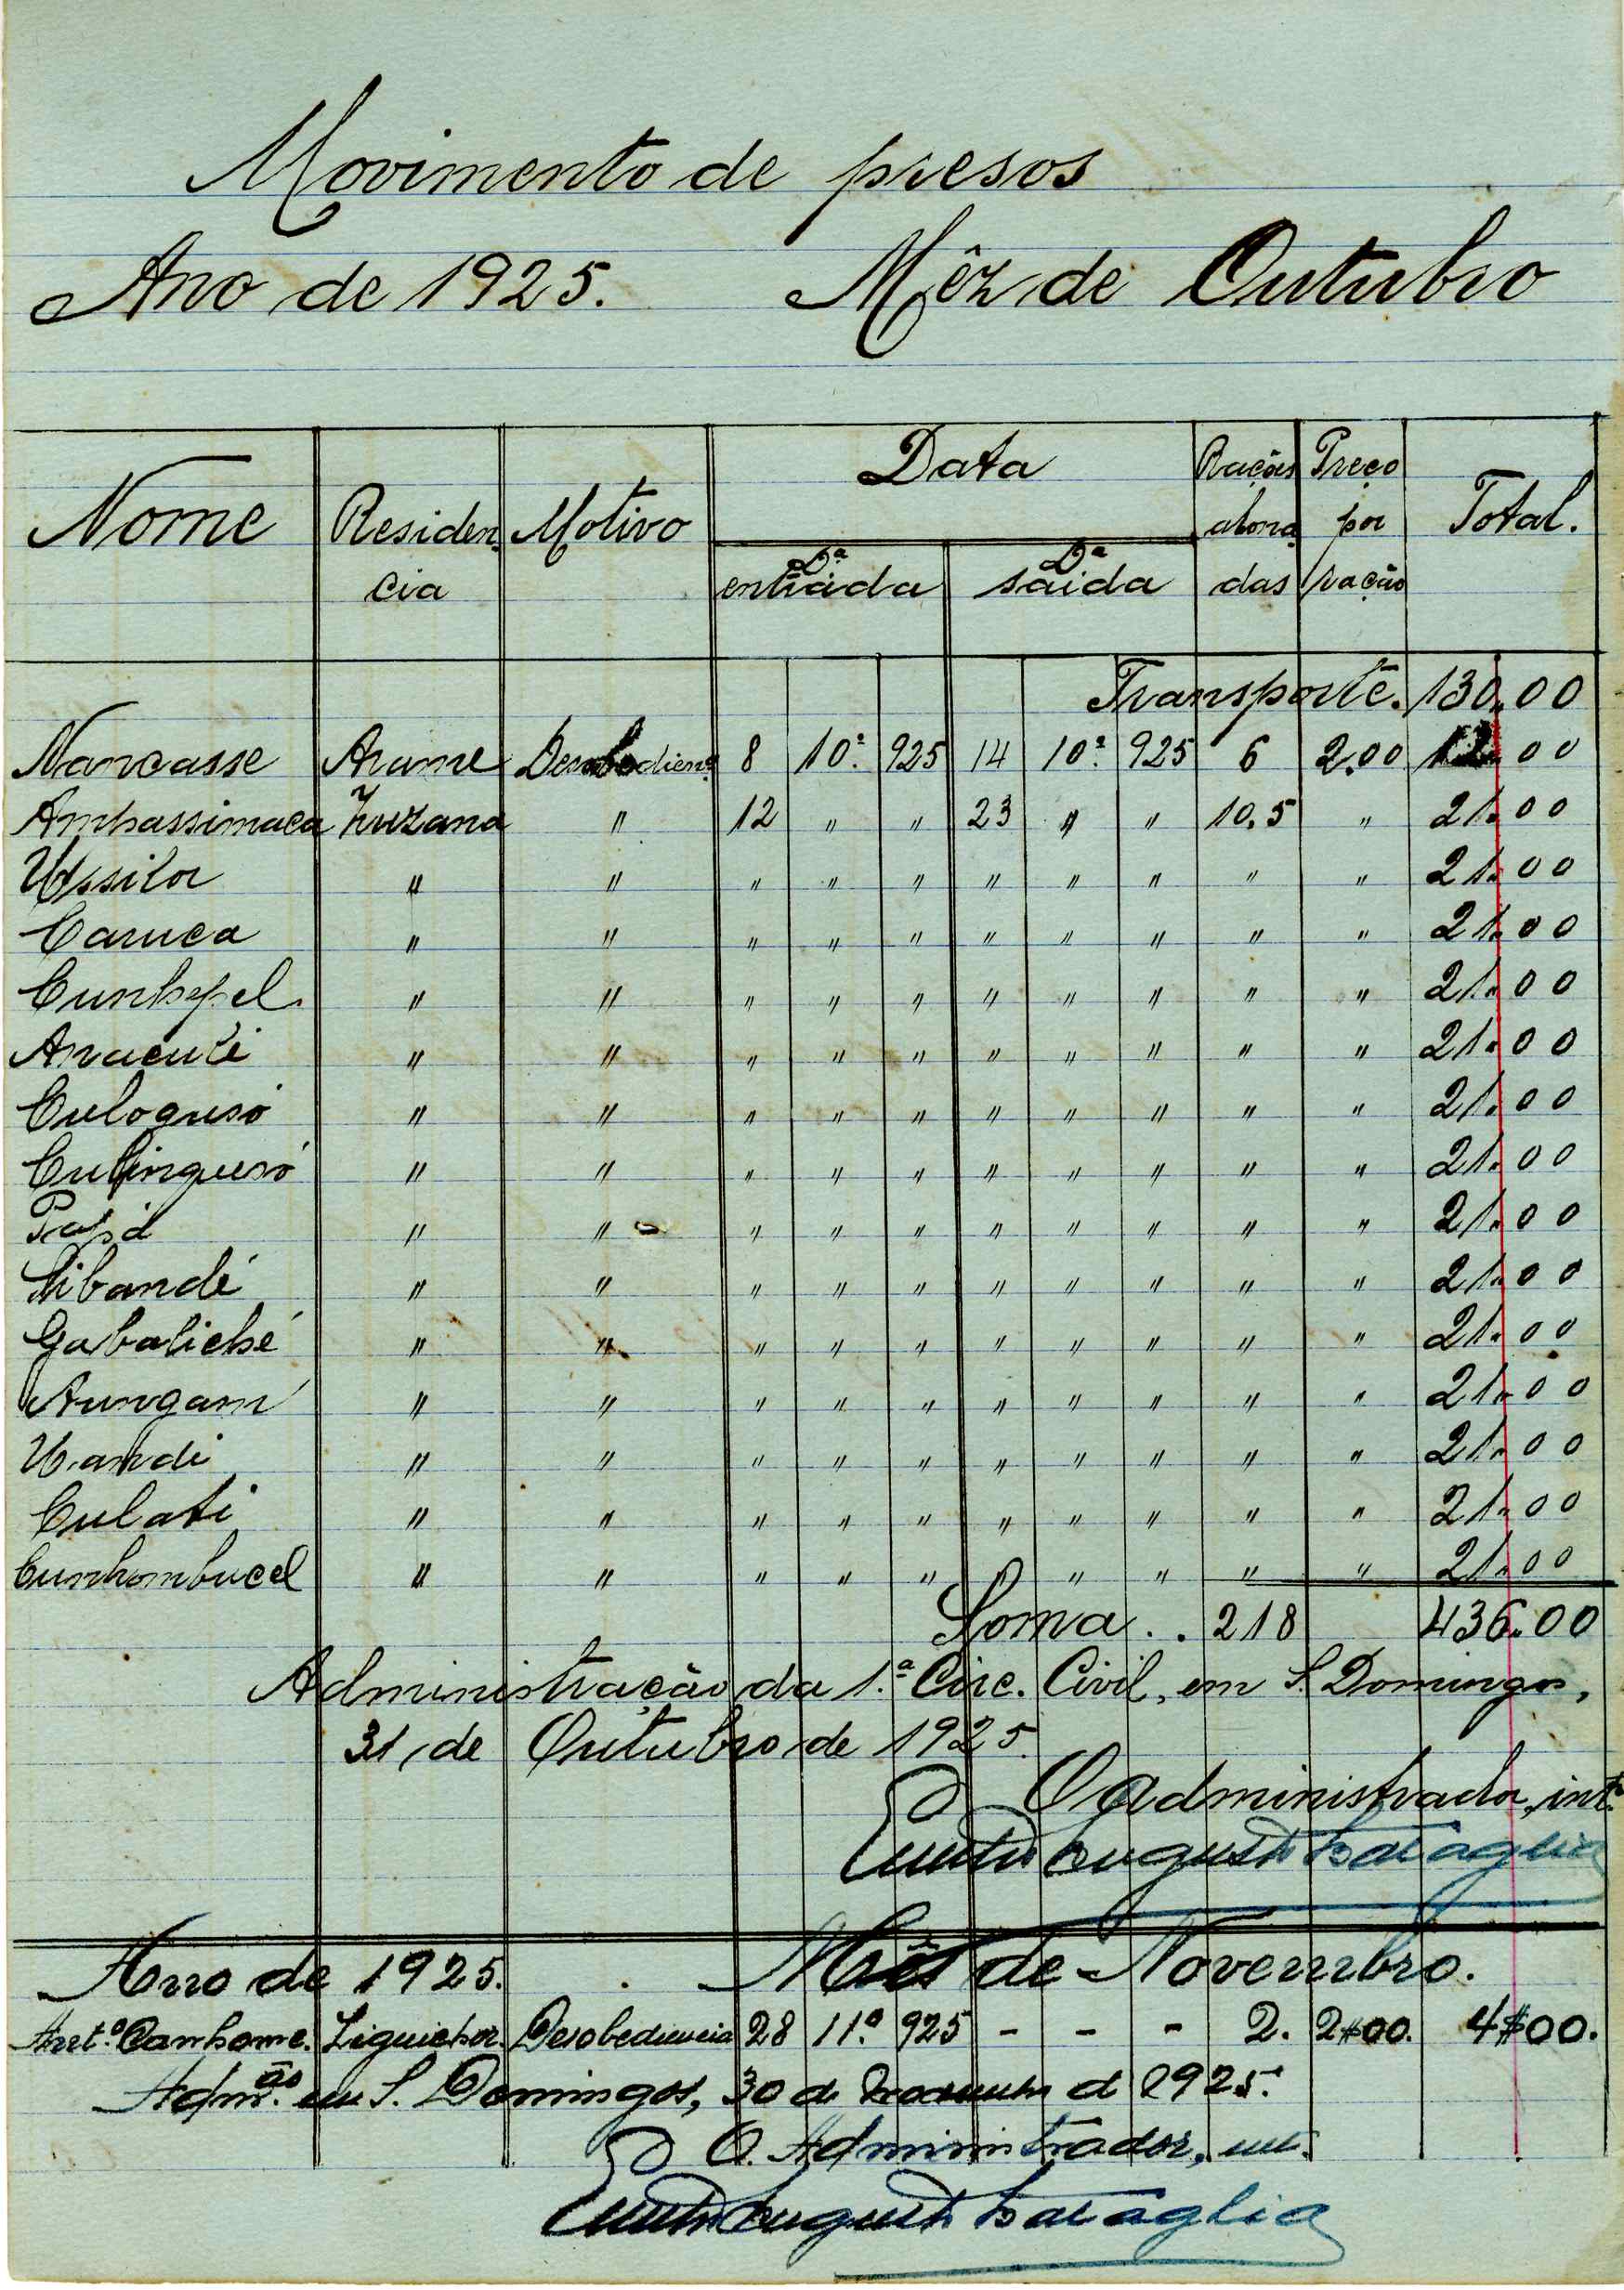 Movimento de presos
Ano de 1925. Mêz de Outubro
Nome Residen- Motivo Data Rações Preço Total.
cia abona- por
Dª Dª
entrada saida das ração
Transporte. 130.00
Nancasse Arame Desobedienc 8 10º 925 14 10º 925 6 2.00 12.00
Ambassimaca Zuzana " 12 " " 23 " " 10,5 " 21.00
Ussilor " " " " " " " " " " 21.00
Caruca " " " " " " " " " " 21.00
" " " " " " " " " " 21.00
" " " " " " " " " " 21.00
Culogusó " " " " " " " " " " 21.00
Culinguesó " " " " " " " " " " 21.00
" " " " " " " " " " 21.00
Sibandé " " " " " " " " " " 21.00
Gabaliché " " " " " " " " " " 21.00
Aungam " " " " " " " " " " 21.00
Uandi " " " " " " " " " " 21.00
Culati " " " " " " " " " " 21.00
Cunhombucel " " " " " " " " " 21.00
Soma . . 218 436.00
Administração da 1.ª Circ. Civil, em S. Domingos,
31, de Outubro de 1925.
O Administrador, intº
Augusto Bataglia
Ano de 1925. Mês de Novembro.
Antº Canhome. Liguicher. Desobediencia 28 11º 925 - - - 2. 2$00. 4$00.
Admº.ão em S. Domingos, 30 de Novembro de 1925.
O. Administrador, int.
Augusto Bataglia